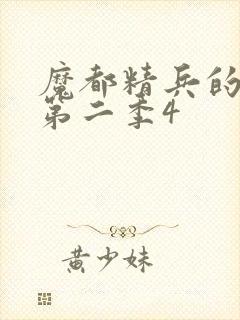 魔都精兵的
第二季4
黄少妹